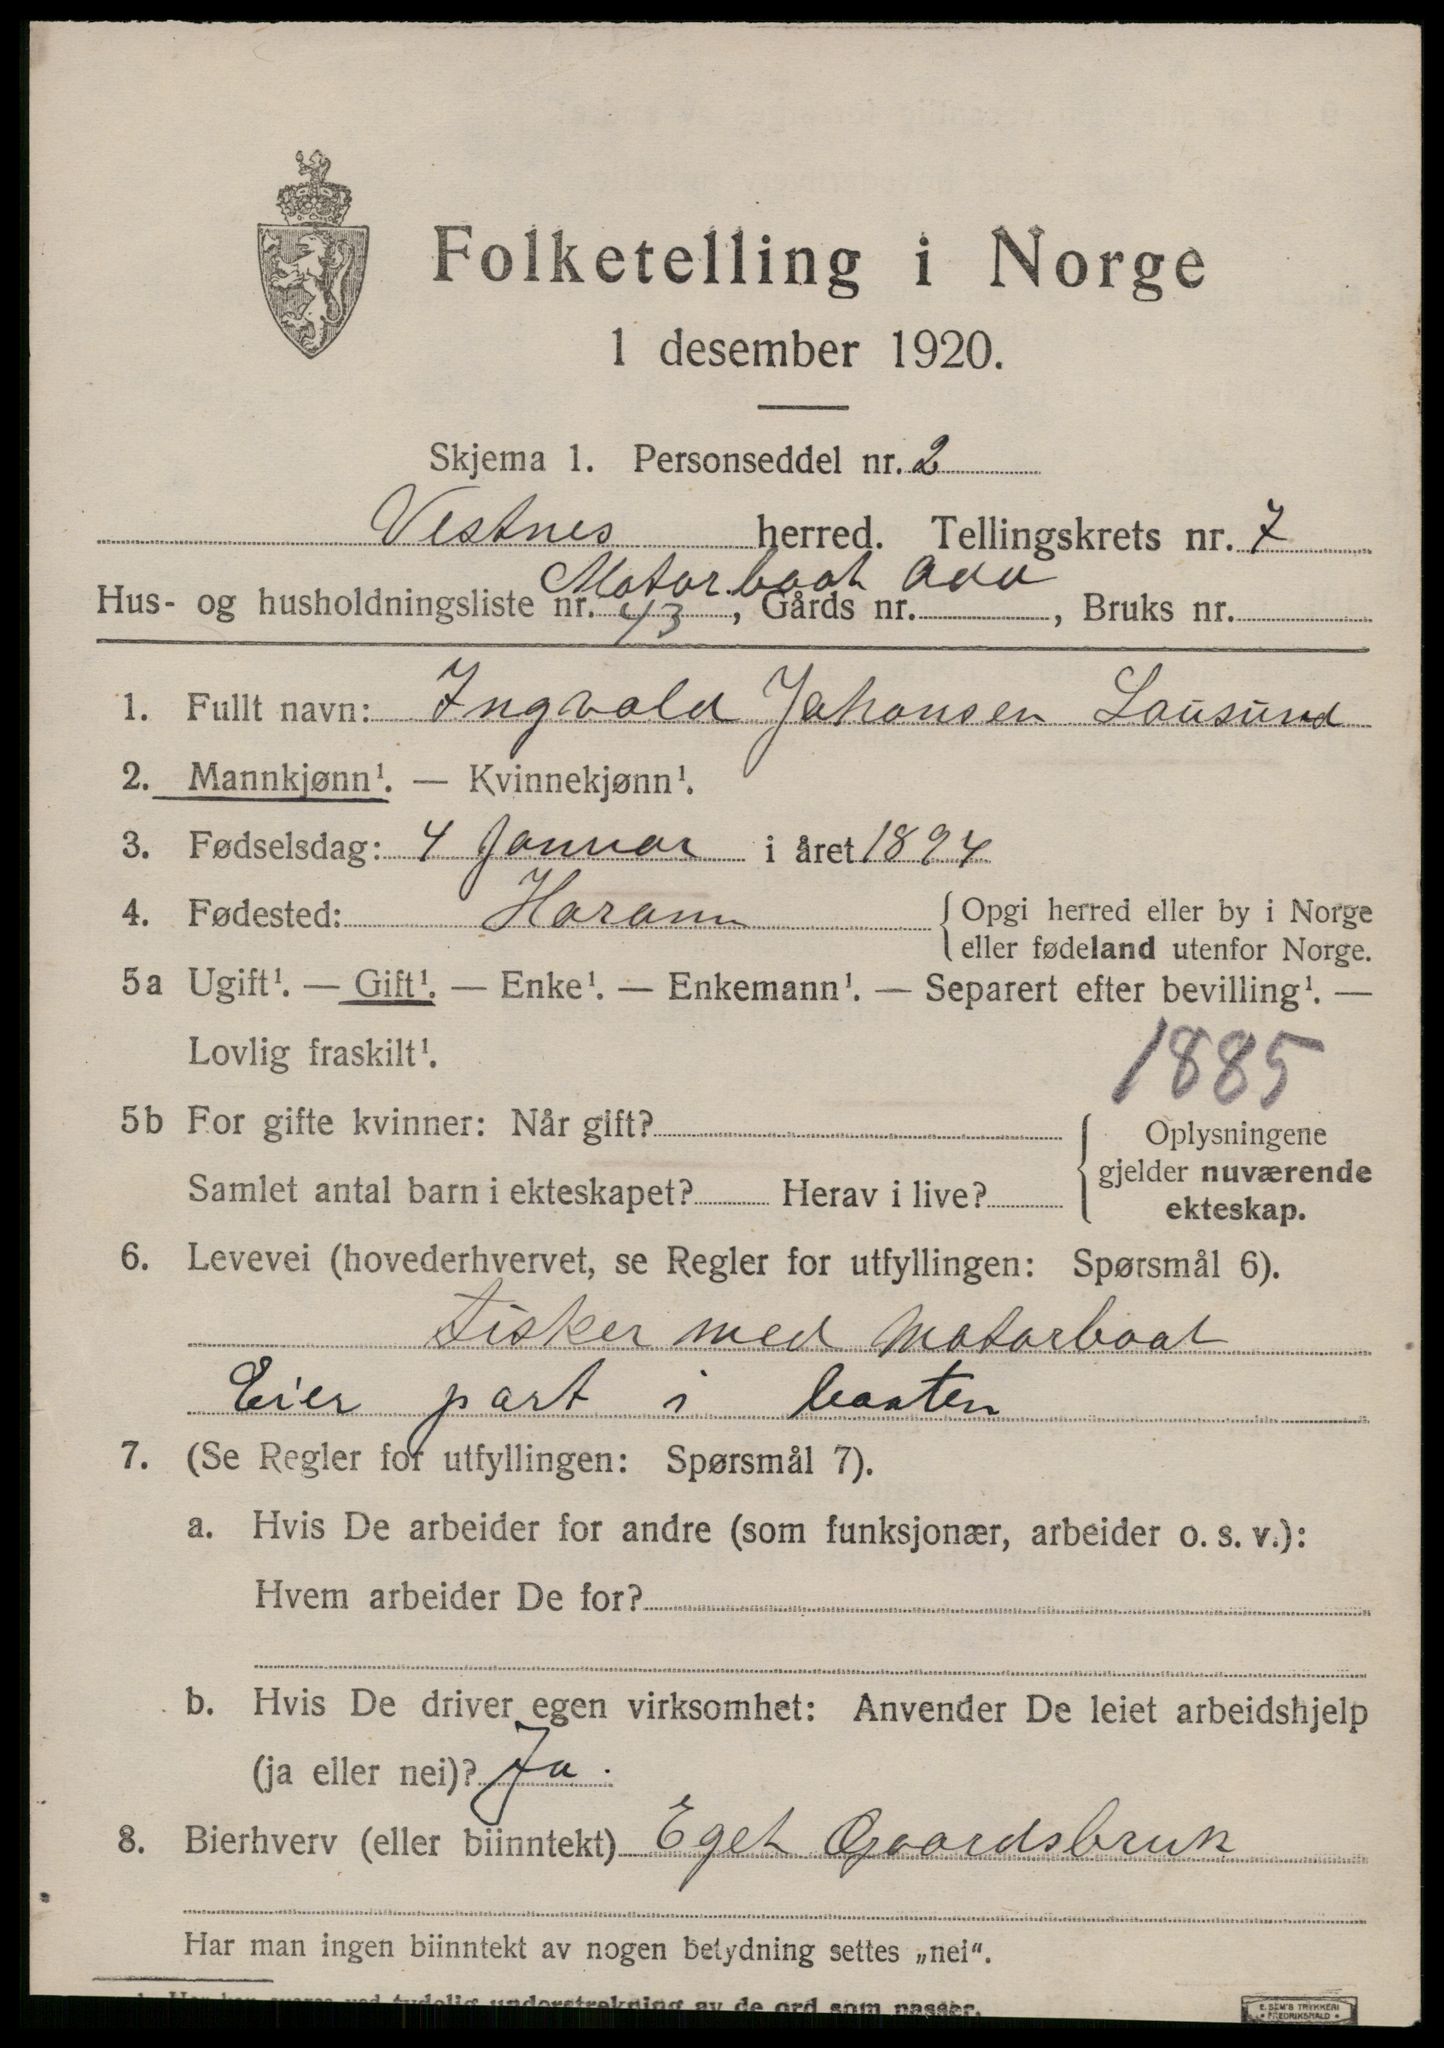 Folketelling i Norge
1 desember 1920.
Skjema 1. Personseddel nr. 2
Vestnes herred. Tellingskrets nr. 7
Motorbaat
Hus- og husholdningsliste nr. 43, Gårds nr. , Bruks nr.
1. Fullt navn: Ingvald Johansen Lausund
2. Mannkjønn¹. — Kvinnekjønn¹.
3. Fødselsdag: 4 Januar i året 1894
4. Fødested: Haram { Opgi herred eller by i Norge
eller fødeland utenfor Norge.
5a Ugift¹. — Gift¹. — Enke¹. — Enkemann¹. — Separert efter bevilling¹. —
Lovlig fraskilt¹.
1885
5b For gifte kvinner: Når gift?
Samlet antal barn i ekteskapet? Herav i live?
{ Oplysningene
gjelder nuværende
ekteskap.
6. Levevei (hovederhvervet, se Regler for utfyllingen: Spørsmål 6).
Fisker med Motorbaat
Eier part i baaten
7. (Se Regler for utfyllingen: Spørsmål 7).
a. Hvis De arbeider for andre (som funksjonær, arbeider o. s. v.):
Hvem arbeider De for?
b. Hvis De driver egen virksomhet: Anvender De leiet arbeidshjelp
(ja eller nei)? Ja.
8. Bierhverv (eller biinntekt) Eget Gaardsbruk
Har man ingen biinntekt av nogen betydning settes „nei“.
ved tydelig understrekning av de ord som passer.
E. SEM'S TRYKKERI
• FREDRIKSHALD •